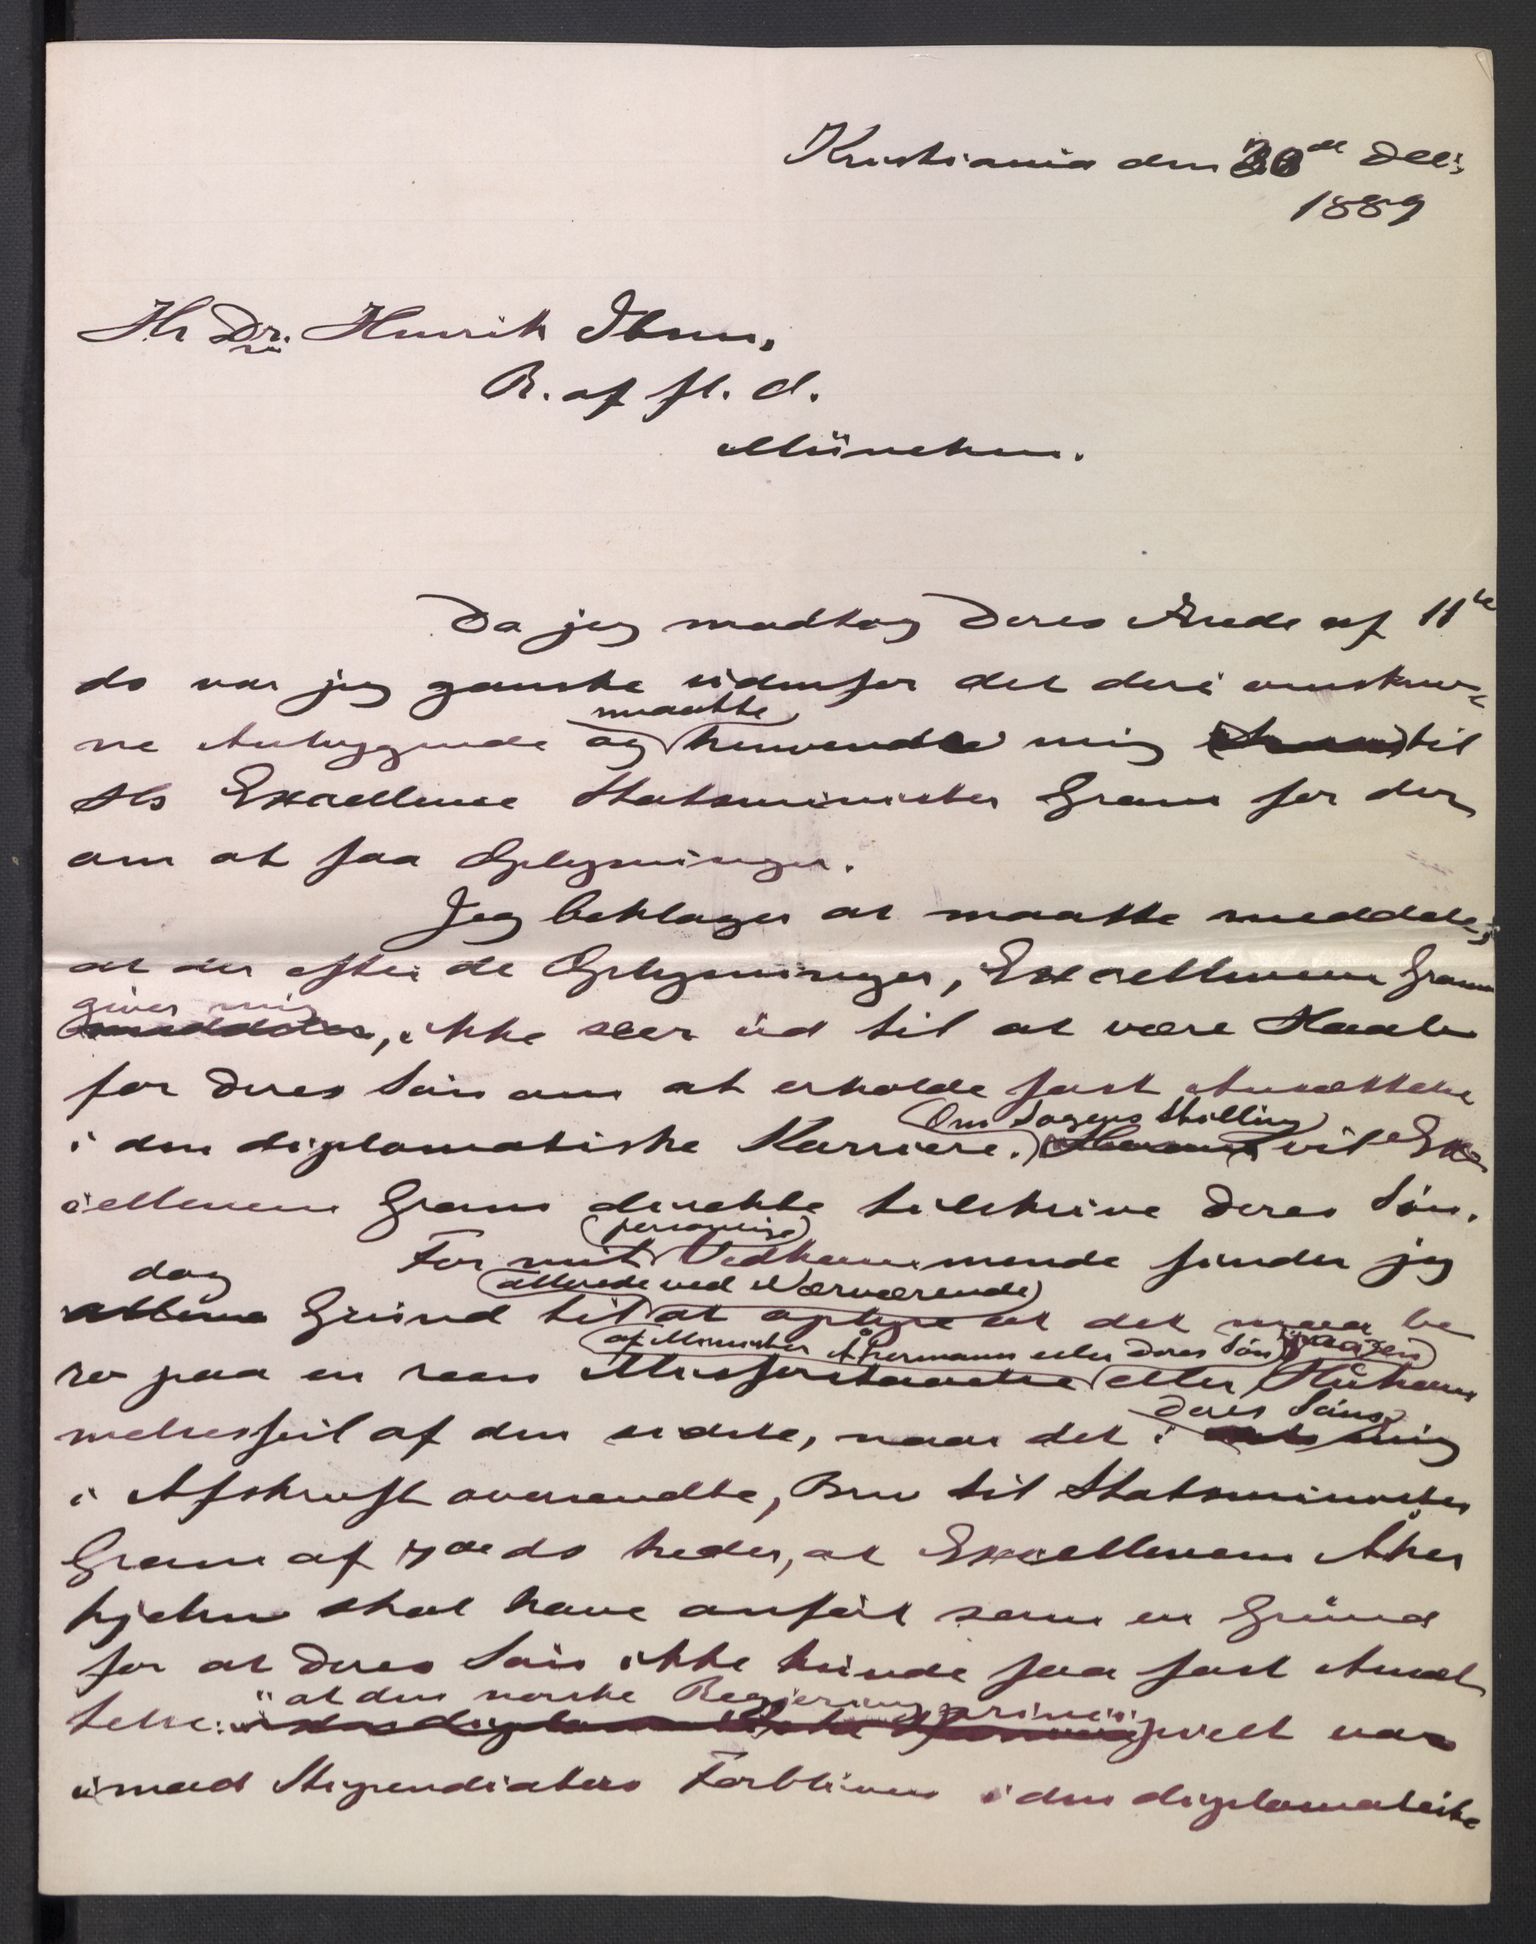 Kristiania den de Dec:
1889
Hr Dr. Henrik Ibsen.
R. af St. O.
München.
Da jeg modtog Deres Ærede af 11te
ds var jeg ganske udenfor det deri omskrev-
maatte
ne Anliggende og henvende mig til
Hs Excellence Statsminister Gram for der
om at faa Oplysninger.
Jeg beklager at maatte meddele,
at der efter de Oplysninger, Excellencen Gram
giver mig
meddeler, ikke seer ud til at være Haab
for Deres Søn om at erholde fast Ansættelse
Om Sagens Stilling
i den diplomatiske Karriere. vil Exc
ellencen Gram direkte tilskrive Deres Søn.
personlige
For mit Vedkommende finder jeg
dog allerede ved Nærværende
allene Grund til at oplyse at det maa be
af Minister Åkermann eller Deres Søn
ro paa en reen Misforstaaelse eller Hukom
Deres Søns
melsesfeil af den sidste, naar det i mig
i Afskrift oversendte, Brev til Statsminister
Gram af 7de ds heder, at Excellencen Åker
hjelm skal have anført som en Grund
for at Deres Søn ikke kunde faa fast Ansæt
"at den norske Regjering principi
telse: i den diplomatiske elt var
imod Stipendiaters Forbliven i den diplomatiske